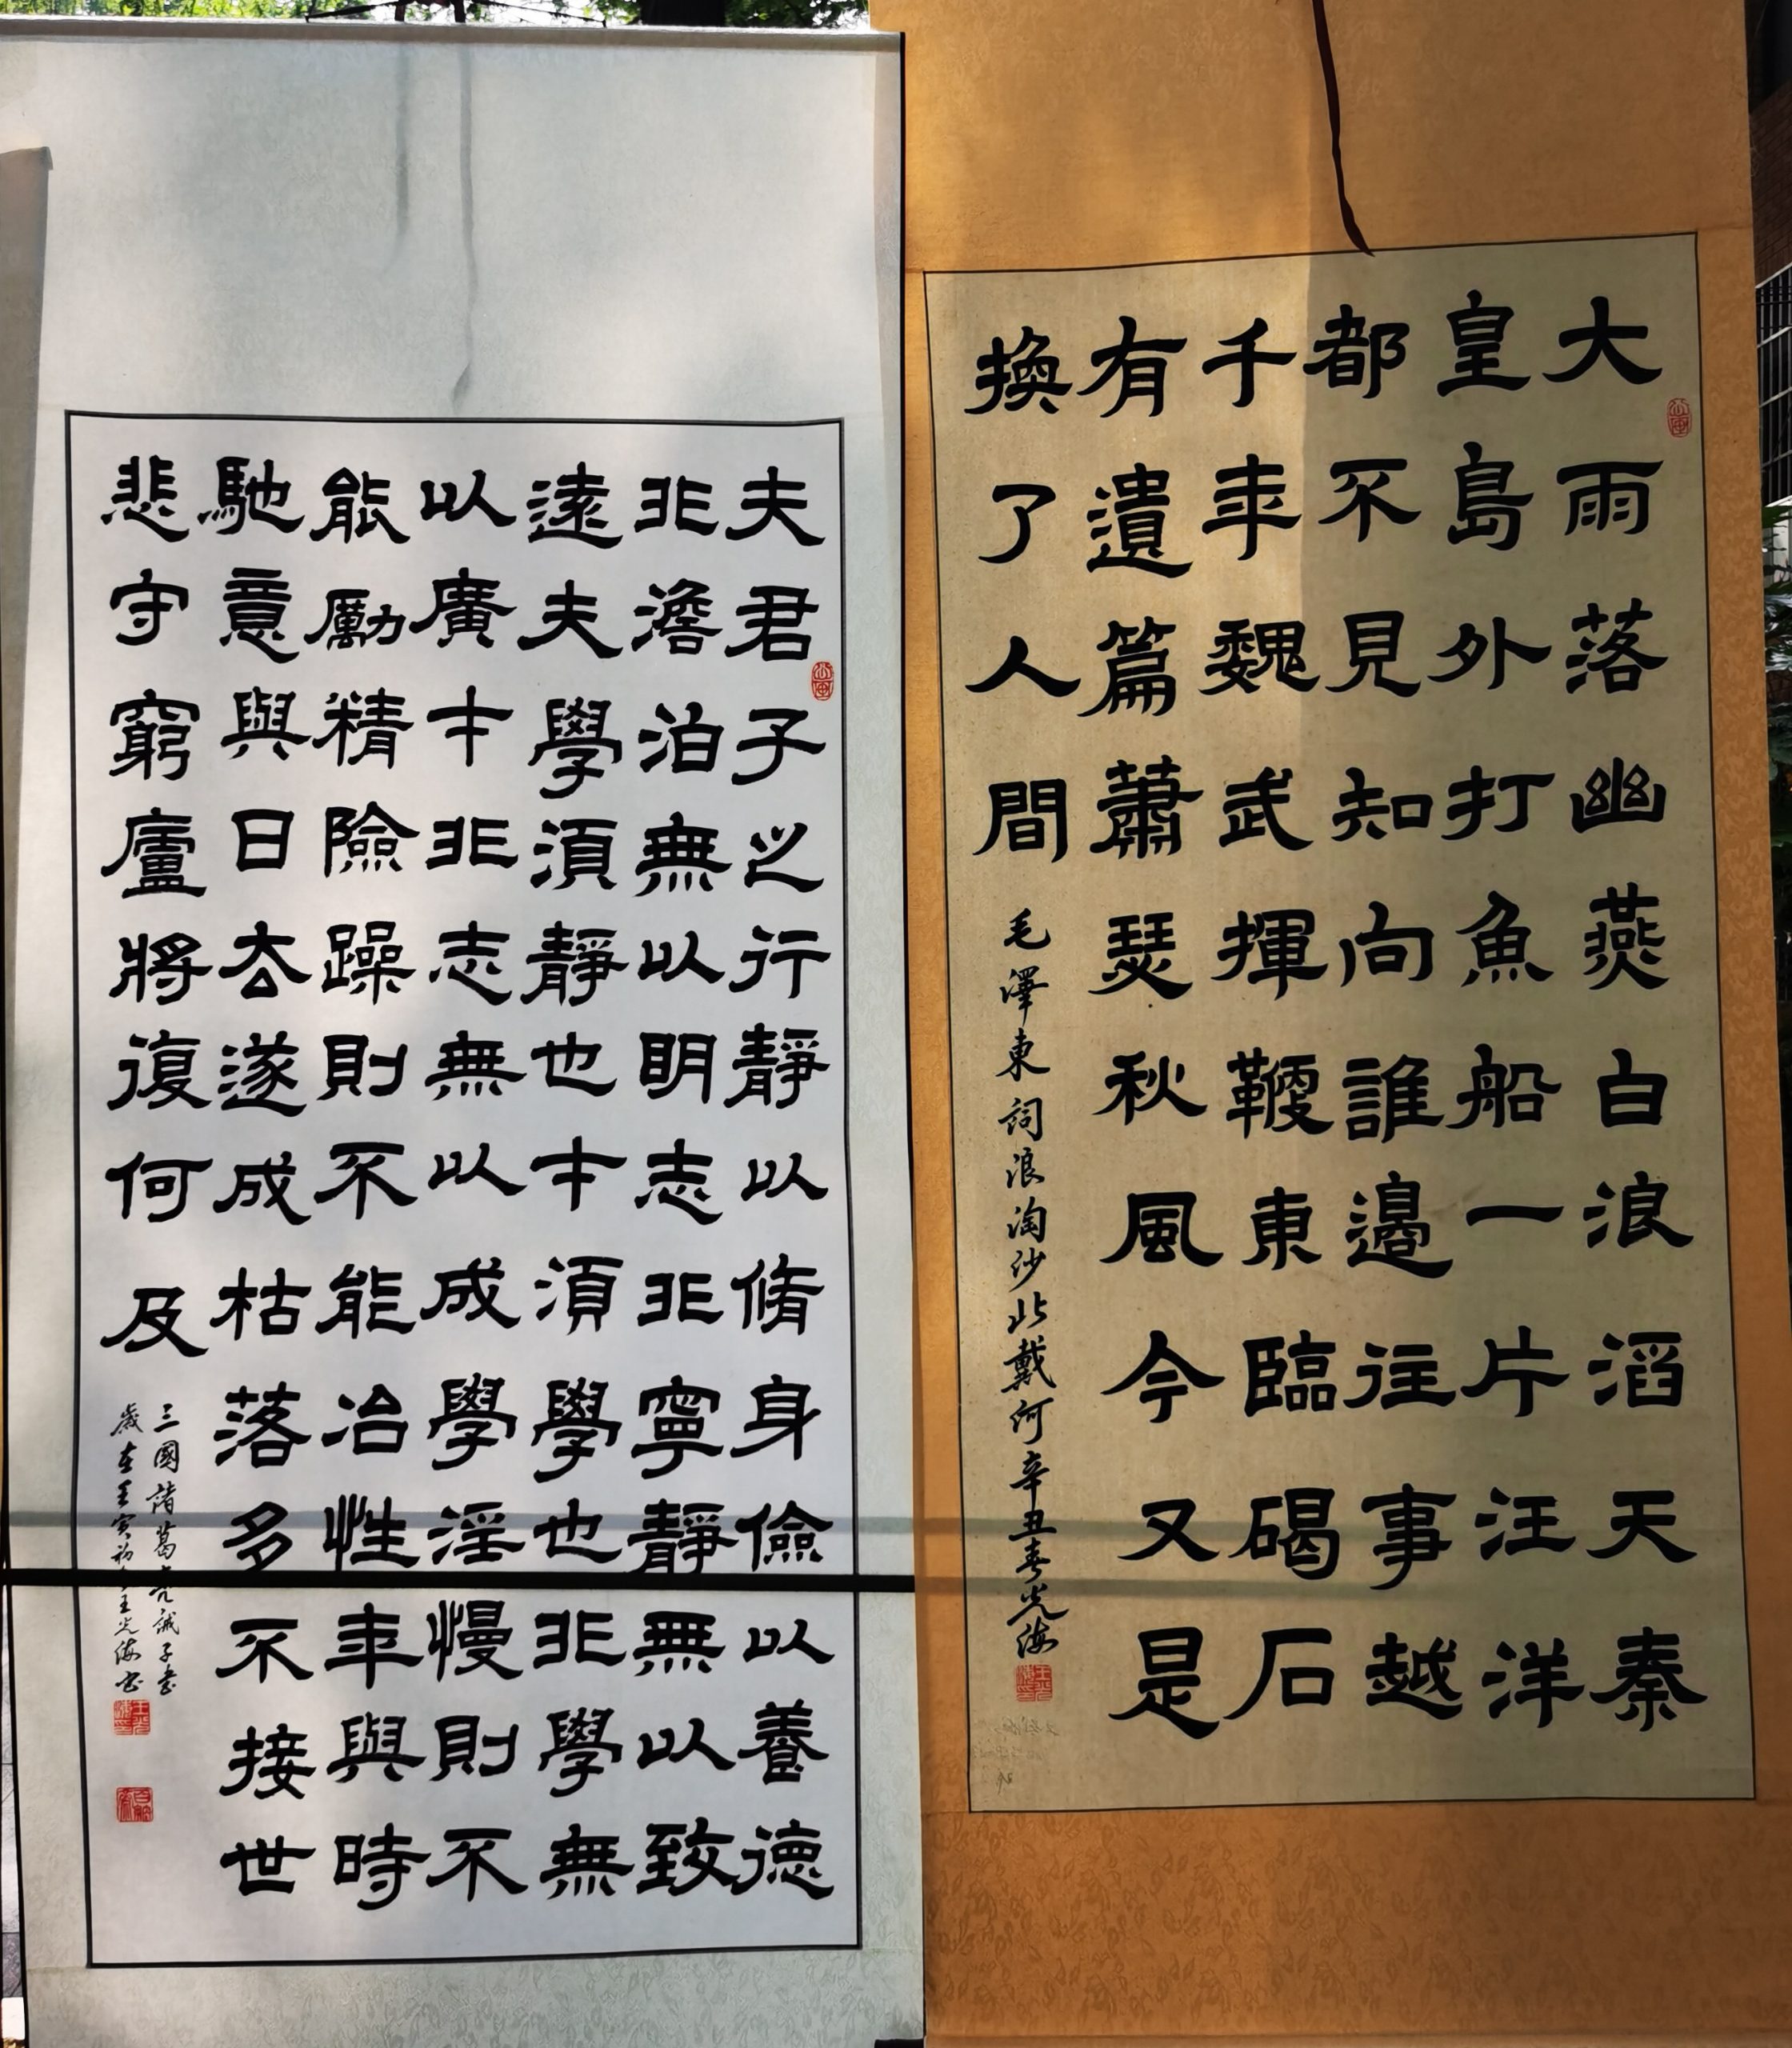 大雨落幽燕白浪滔天秦
皇島外打魚船一片汪洋
都不見知向誰邊往事越
千年魏武揮鞭東臨碣石
有遺篇蕭瑟秋風今又是
換了人間
毛澤東詞浪淘沙北戴河辛丑春光海
夫君子之行靜以脩身儉以養德
非澹泊無以眀志非寧靜無以致
遠夫學須靜也才須學也非學無
以廣才非志無以成學淫慢則不
能勵精險躁則不能冶性年與時
馳意與日去遂成枯落多不接世
悲守窮廬將復何及
三國諸葛亮誡子書
歲在壬寅初王光海書